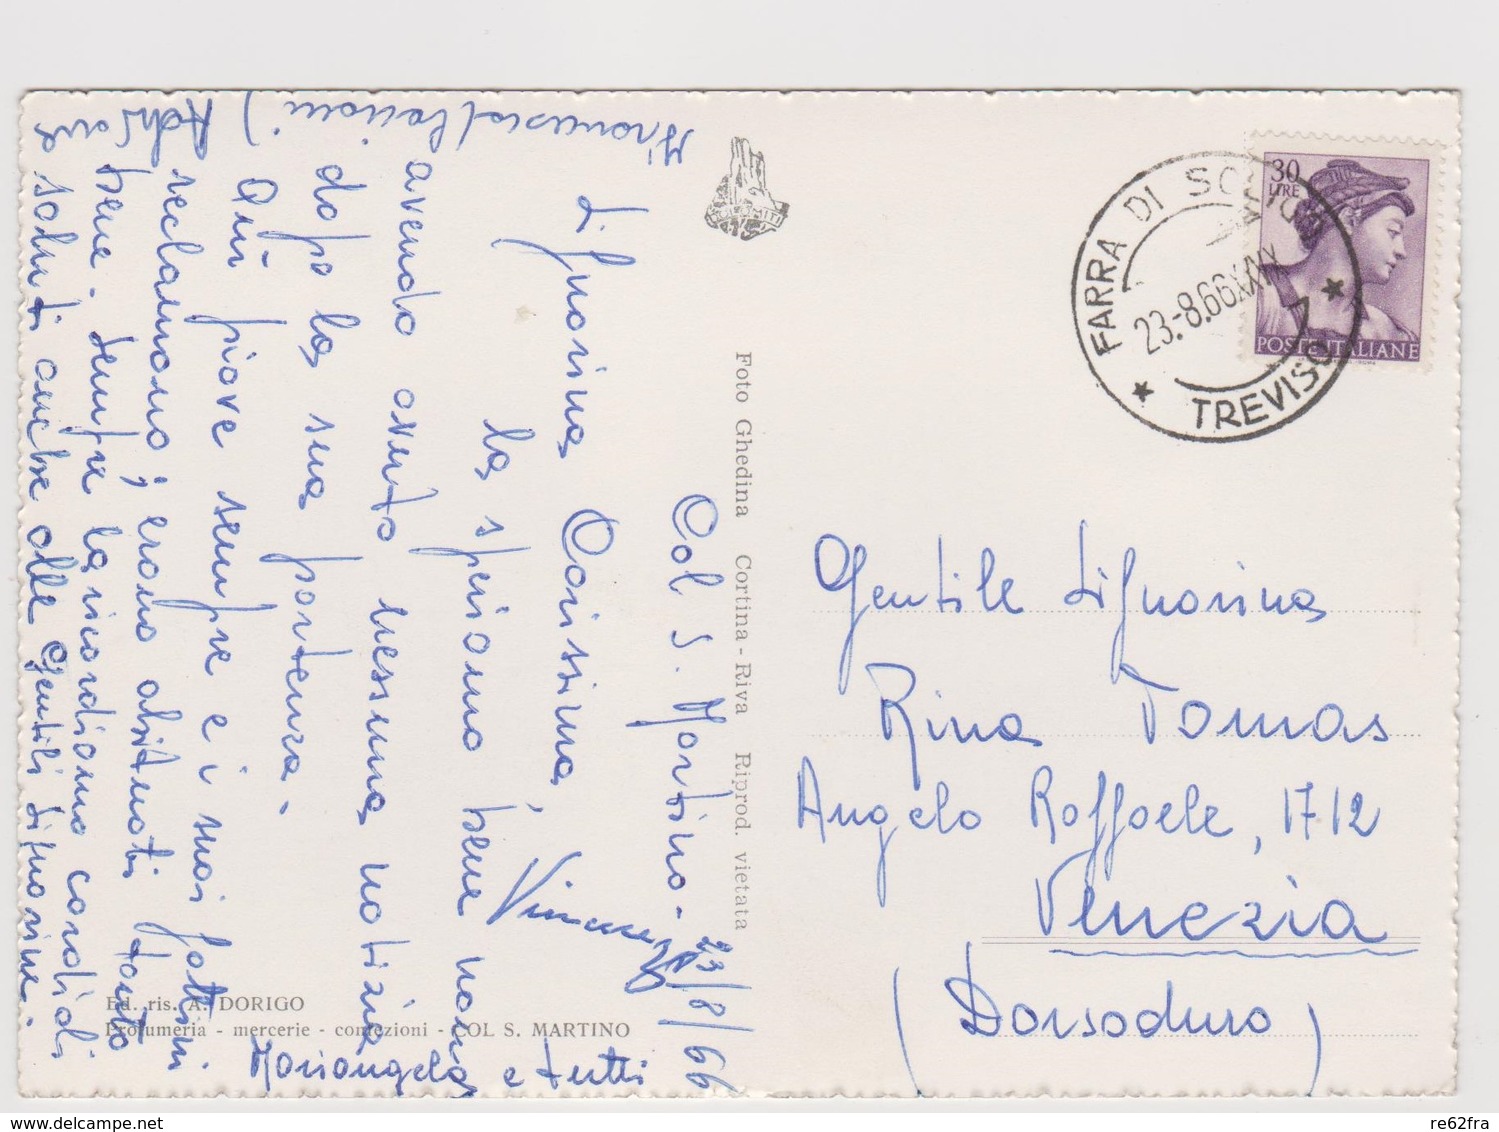 Col S. Martino - 23/8/66
Signorina Carissima,
la speriamo bene non
avendo avuto nessuna notizia
dopo la sua partenza.
Qui piove sempre e i suoi
reclamano, erano abituati tanto
bene. Sempre la ricordiamo cordiali
saluti anche alle Gentili Signorine.
Mariangela e tutti
DOLOMITI
Foto Ghedina Cortina - Riva Riprod. vietata
Ed. ris. A. DORIGO
Profumeria - mercerie - confezioni - COL S. MARTINO
30
LIRE
POSTE ITALIANE
FARRA DI SOLIGO
23.-8.66
TREVISO
Gentile Signorina
Rina Tomas
Angelo Raffaele, 1712
Venezia
(Dorsoduro)
delcampe.net
re62fra